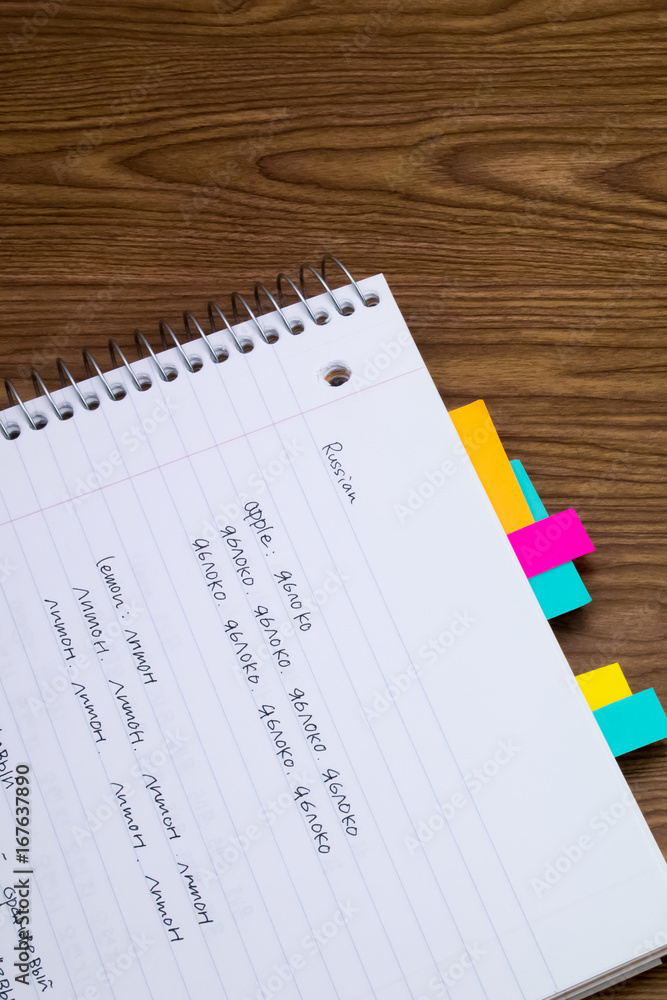 Russian
apple: яблоко
яблоко. яблоко. яблоко. яблоко
яблоко. яблоко. яблоко. яблоко
lemon: литон
литон. литон. литон. литон
литон. литон. литон. литон
Adobe Stock | #167637890